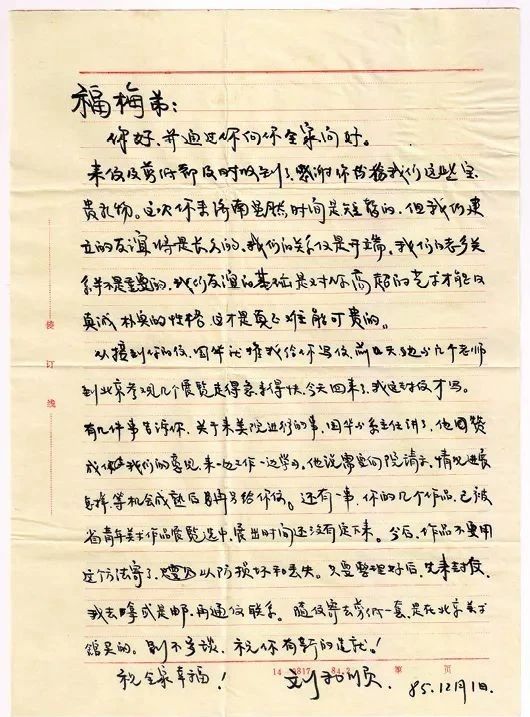 福梅弟:
你好、并通过你向你全家问好。
来信及剪纸都及时收到了,感谢你给我们这些宝
贵礼物。这次你来济南虽然时间是短暂的,但我们建
立的友谊将是长久的,我们的关系仅是开端,我们的老乡关
系并不是重要的,我们友谊的基础是对你高超的艺术才能及
真诚朴实的性格,这才是真正难能可贵的。
从接到你的信,国华就推我给你写信,前几天又他几个老师
到北京参观几个展览走得急来得快,今天回来了,我这封信才写。
有几件事告诉你,关于来美院进行的事,国华系主任讲了,他同意赞
成我们的意见,来一边工作一边学习。他说需要向院请示,情况进展
怎样,等机会成熟后再另给你信。还有一事,你的几个作品,已被
省青年美术作品展览选中,展出时间还没有定下来。今后,作品不要用
这个方法寄了,以防损坏和丢失。只要整理好后,先来封信,
我去拿或是邮,再通信联系。随信寄去剪纸一套,是在北京美术
馆买的。别不多谈,祝你有新的造就!
祝全家幸福!
刘 顺 85.12月1日.
装订线
14 0817 84.2
第 页